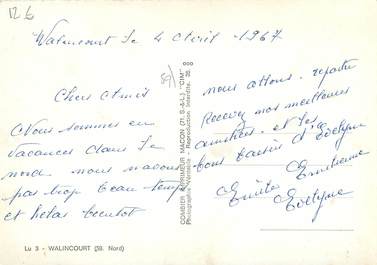 12 6
Walincourt le 4 Avril - 1967
Chers Amis
Nous sommes en
vacances dans le
nord nous navons
pas trop beau temps
et helas bientot
nous allons repartir
Recevez nos meilleures
amitiées et les
bons baisers d'Evelyne
Emilienne
Evelyne
COMBIER IMPRIMEUR MACON (71. S.-&-L.) "CIM"
Photographie Véritable - Reproduction Interdite.
Lu 3 - WALINCOURT (59. Nord)